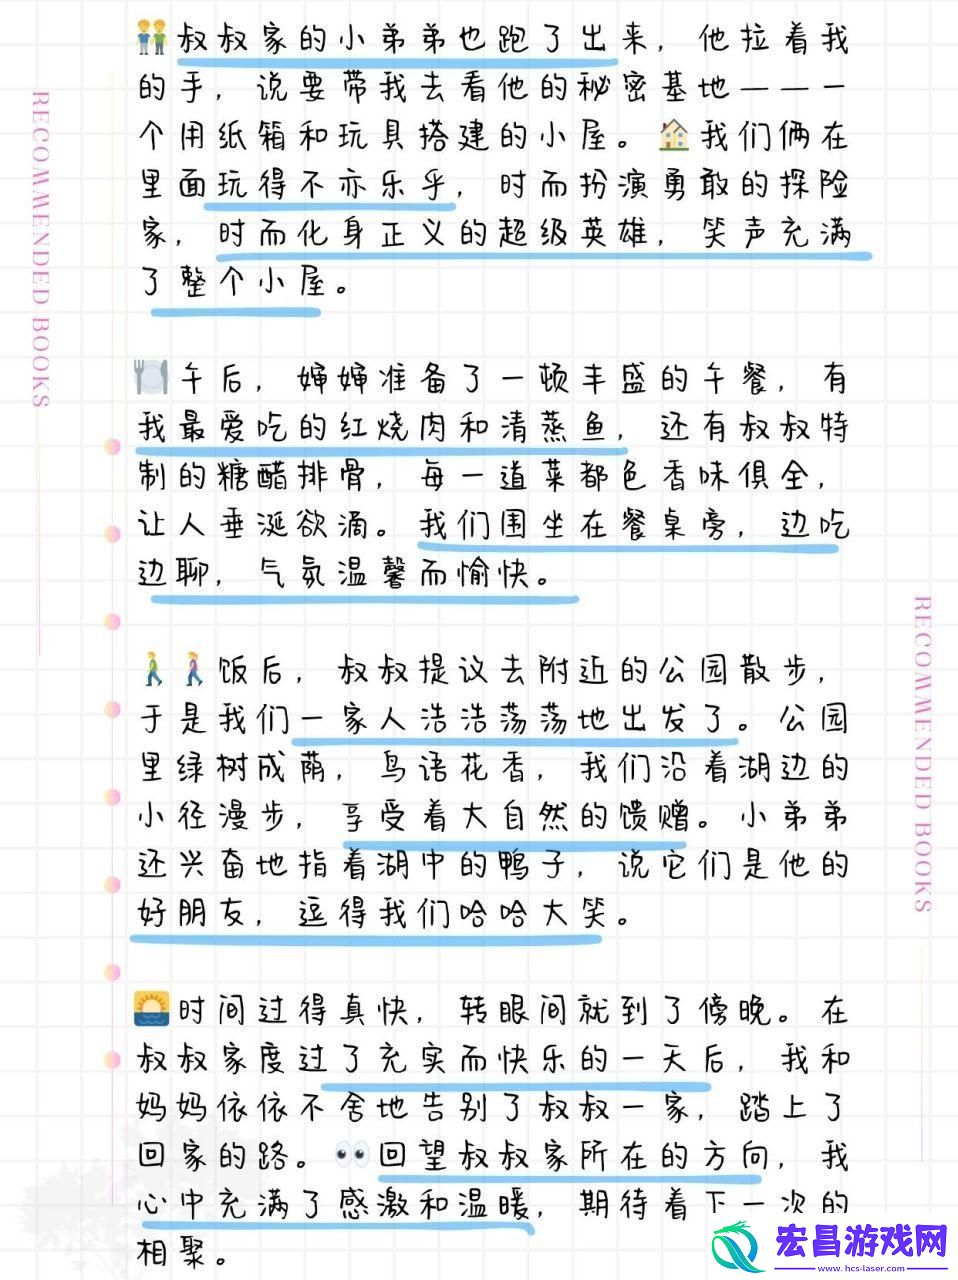 叔叔家的小弟弟也跑了出来，他拉着我
的手，说要带我去看他的秘密基地——一
个用纸箱和玩具搭建的小屋。我们俩在
里面玩得不亦乐乎，时而扮演勇敢的探险
家，时而化身正义的超级英雄，笑声充满
了整个小屋。
午后，婶婶准备了一顿丰盛的午餐，有
我最爱吃的红烧肉和清蒸鱼，还有叔叔特
制的糖醋排骨，每一道菜都色香味俱全，
让人垂涎欲滴。我们围坐在餐桌旁，边吃
边聊，气氛温馨而愉快。
饭后，叔叔提议去附近的公园散步，
于是我们一家人浩浩荡荡地出发了。公园
里绿树成荫，鸟语花香，我们沿着湖边的
小径漫步，享受着大自然的馈赠。小弟弟
还兴奋地指着湖中的鸭子，说它们是他的
好朋友，逗得我们哈哈大笑。
时间过得真快，转眼间就到了傍晚。在
叔叔家度过了充实而快乐的一天后，我和
妈妈依依不舍地告别了叔叔一家，踏上了
回家的路。回望叔叔家所在的方向，我
心中充满了感激和温暖，期待着下一次的
相聚。
RECOMMENDED BOOKS
RECOMMENDED BOOKS
宏昌游戏网
www.hcs-laser.com